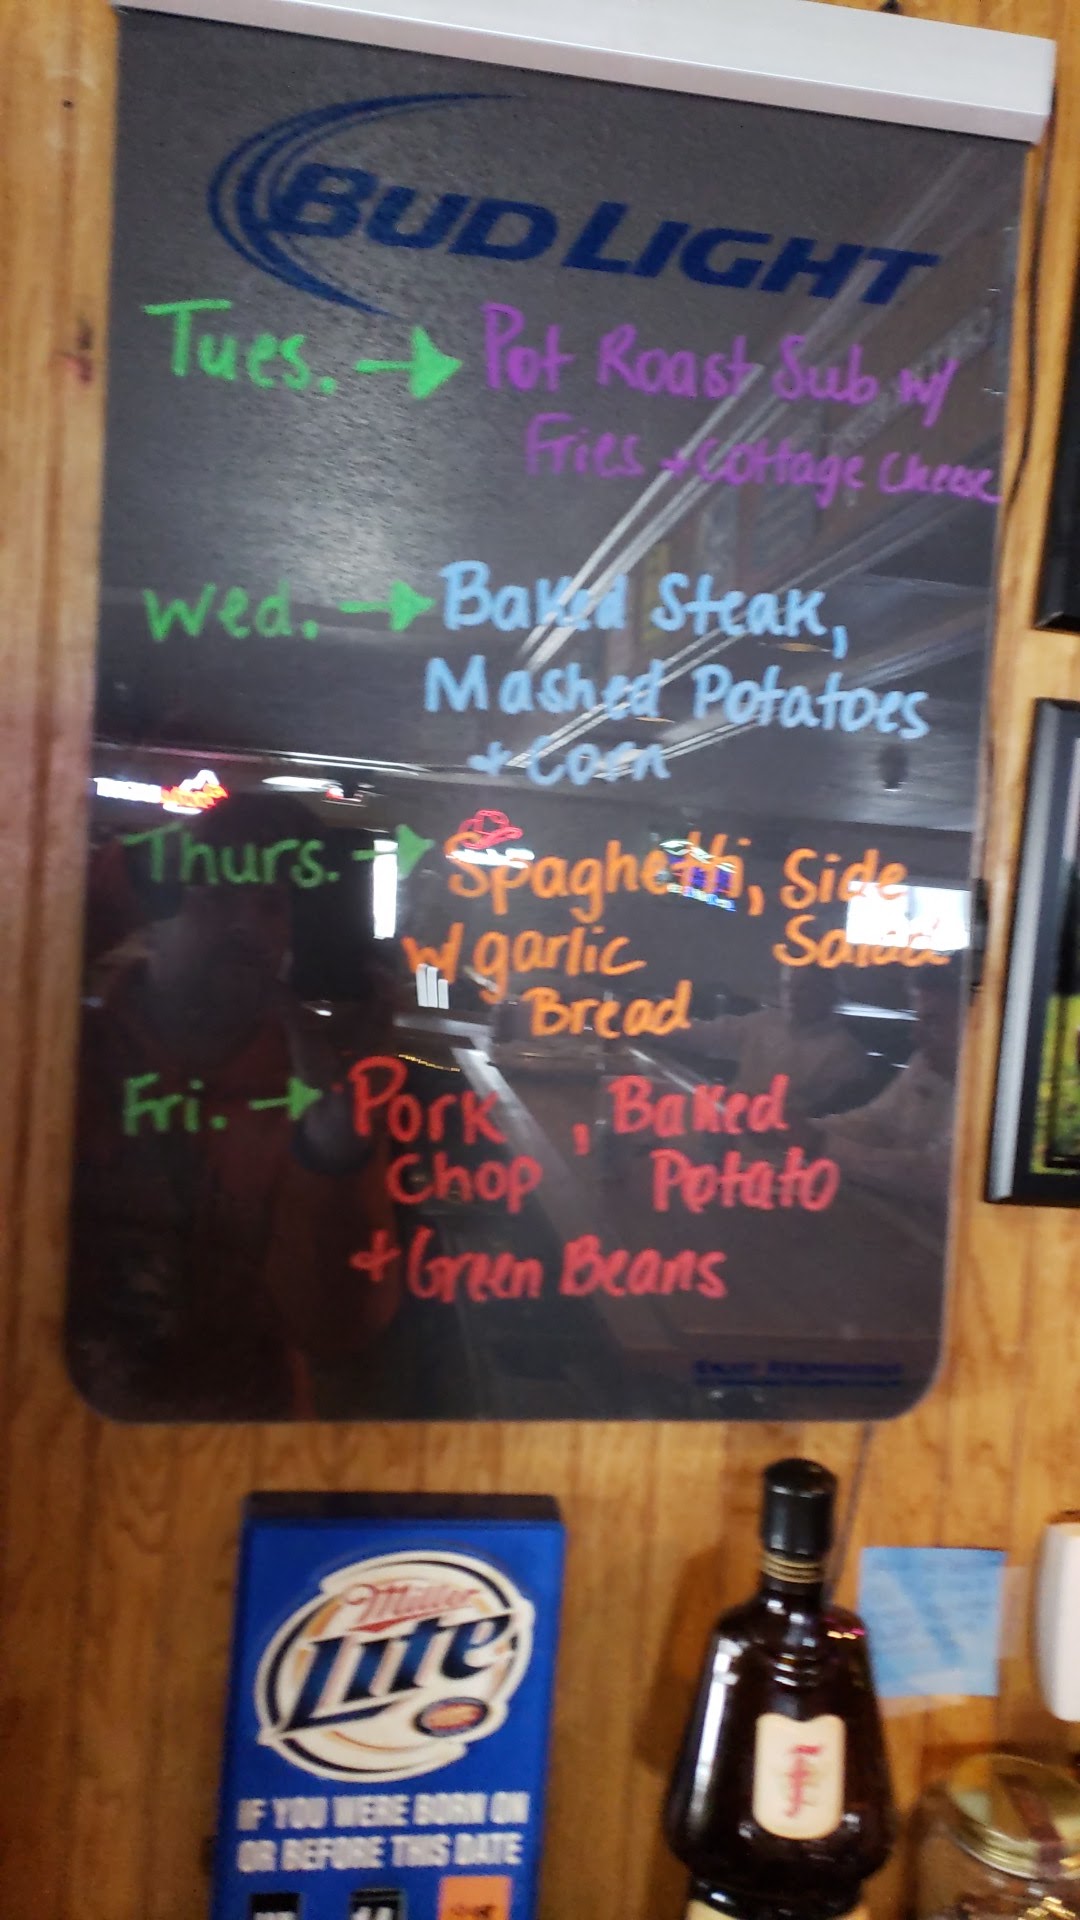 BUD LIGHT
Tues. → Pot Roast Sub w/
Fries + Cottage Cheese
Wed. → Baked Steak,
Mashed Potatoes
+ Corn
Thurs. → Spaghetti, Side
w/ garlic Salad
Bread
Fri. → Pork , Baked
Chop Potato
+ Green Beans
ENJOY RESPONSIBLY
Miller
Lite
IF YOU WERE BORN ON
OR BEFORE THIS DATE